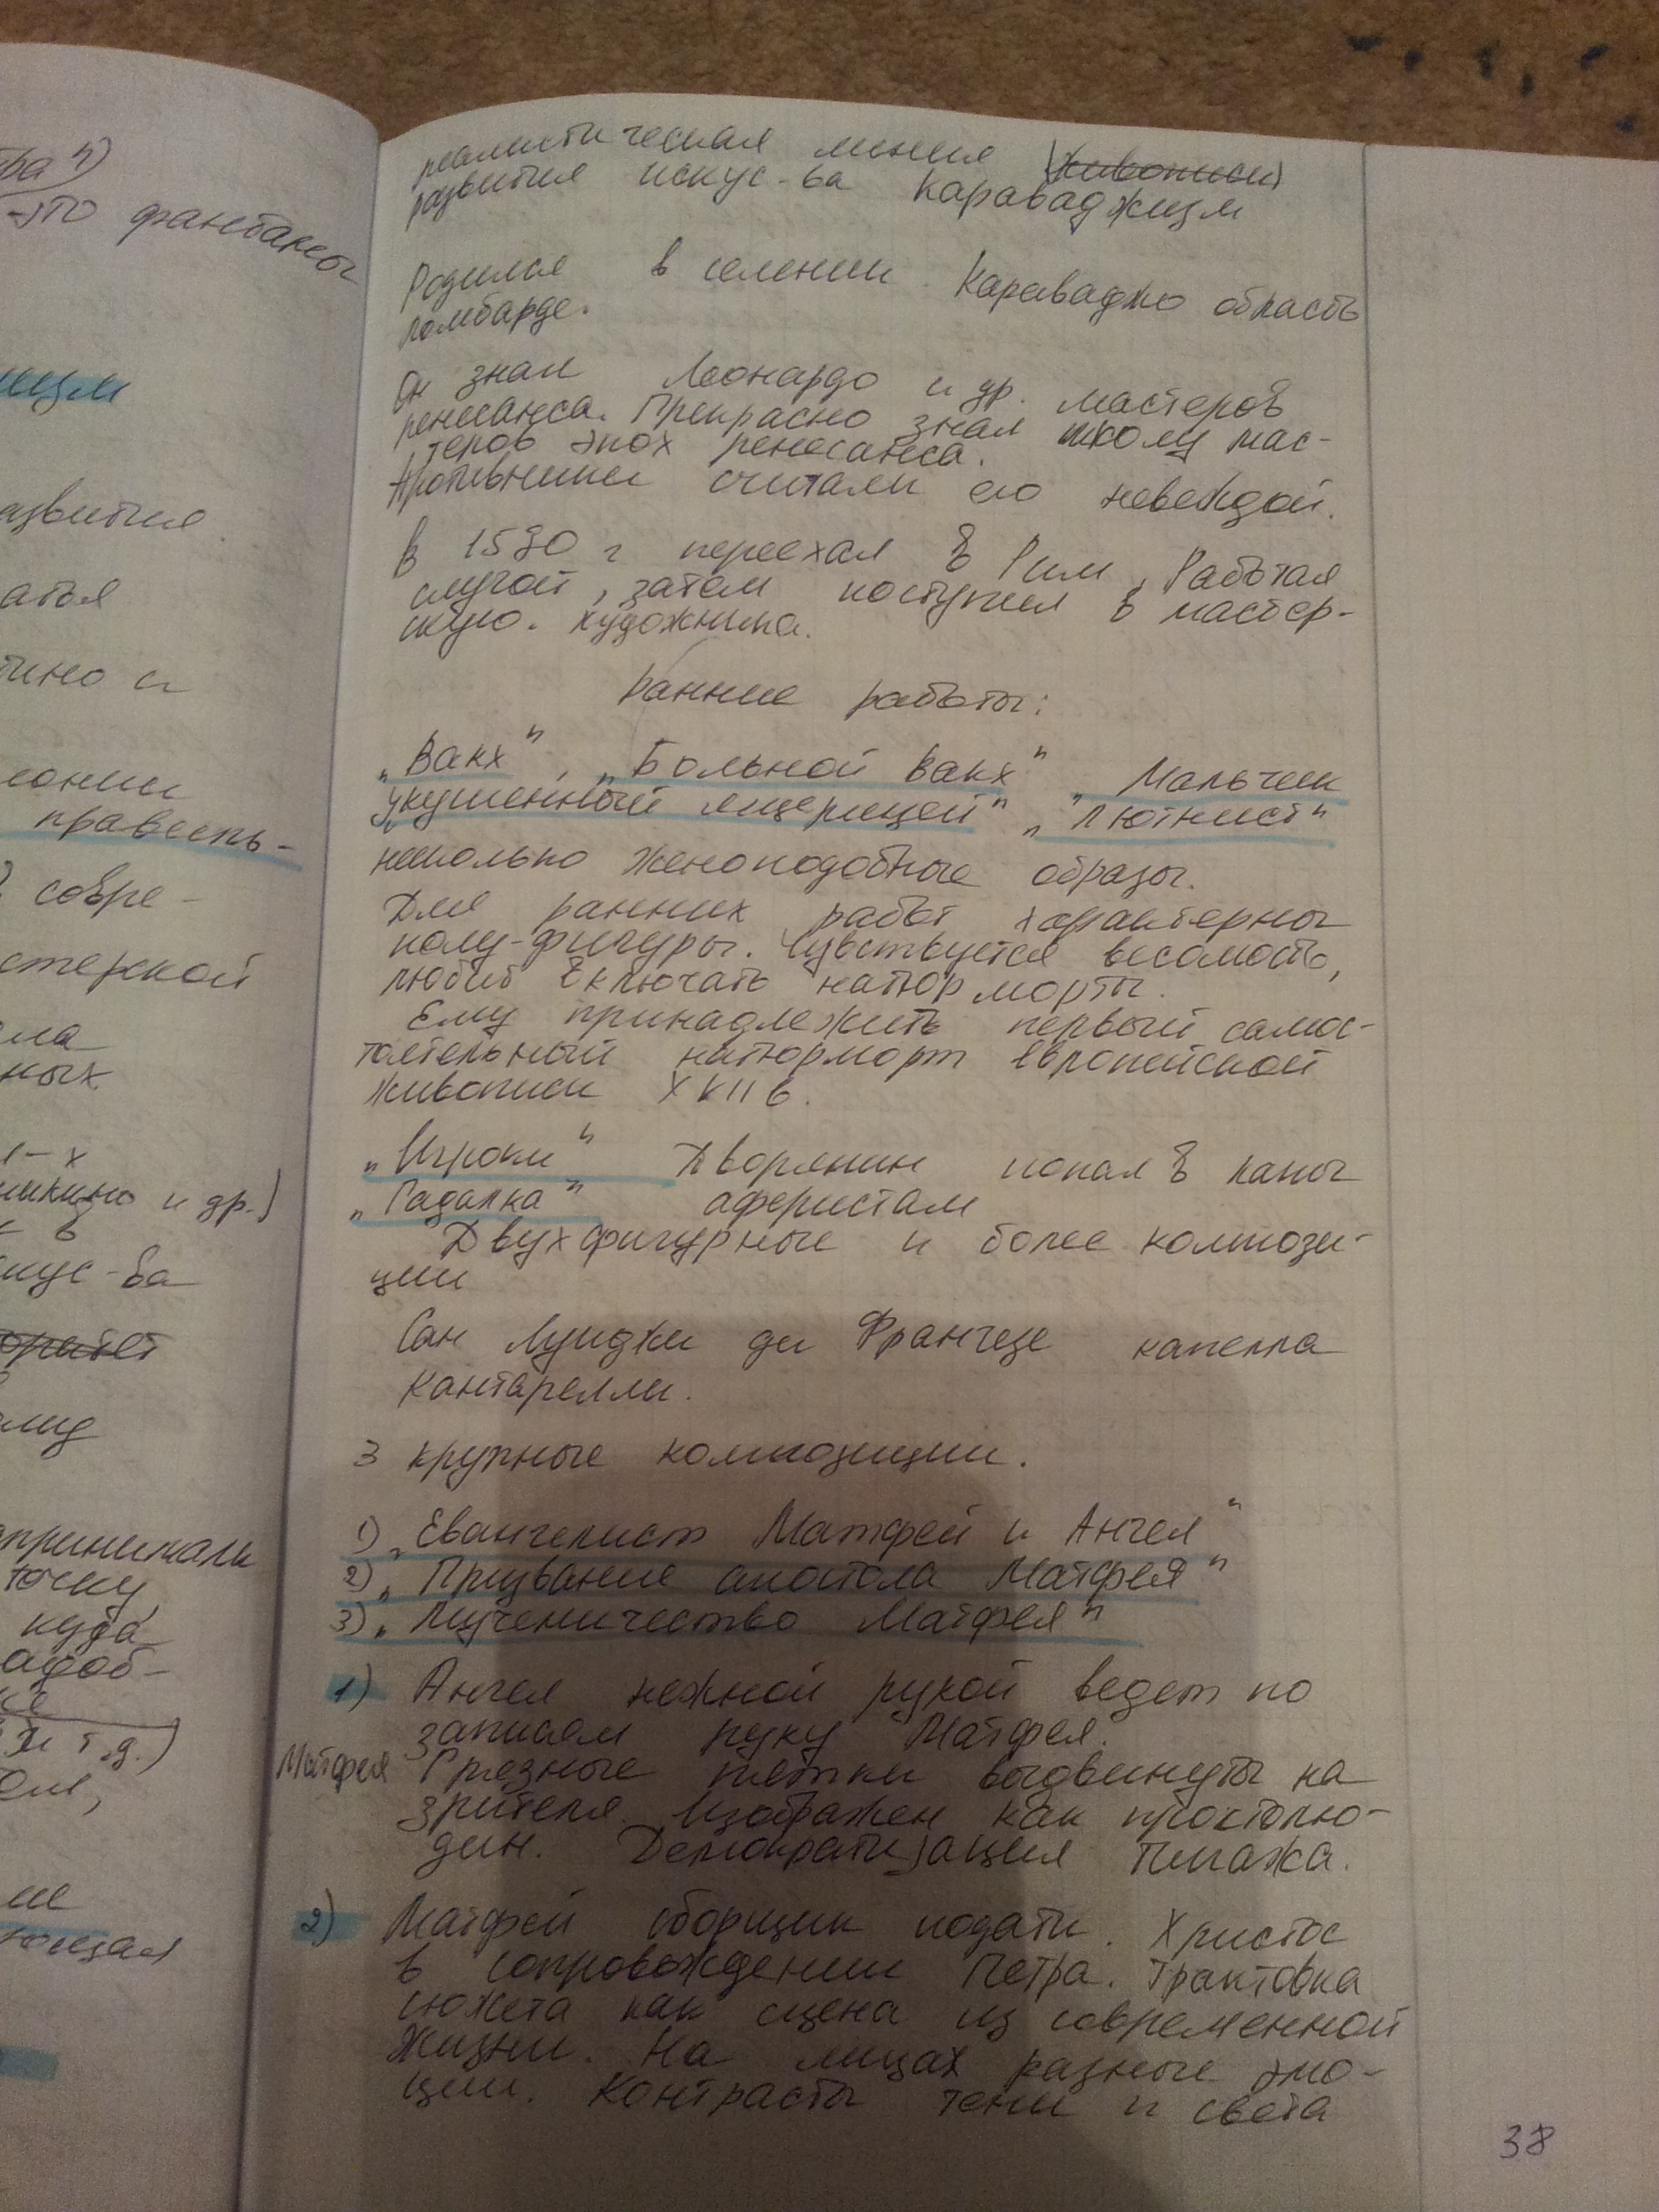 тра")
это фантаны
изм
азвития
атья
тино и
лонии
правель-
совре-
стерской
ла
ных
и др.)
в
кус-ва
принимали
точку
куда
адоб-
и т.д.)
ющая
реалистическая линия (живописи)
развития искус-ва Караваджизм
Родился в селении Караваджо область
ломбарде.
Он знал Леонардо и др. мастеров
ренесанса. Прекрасно знал школу мас-
теров эпох ренесанса.
Противники считали его невеждой.
В 1580 г переехал в Рим, Работал
слугой, затем поступил в мастер-
скую. художника.
Ранние работы:
„Вакх", „Больной Вакх" „Мальчик
укушенный ящерицей" „Лютнист"
несколько женоподобные образы.
Для ранних работ характерны
полу-фигуры. Чувствуется весомость,
любит включать натюрморты.
Ему принадлежить первый самос-
тоятельный натюрморт Европейской
живописи XVII в.
„Игроки" Дворянин попал в лапы
„Гадалка" аферистам
Двухфигурные и более компози-
ции
Сан Луиджи ди Франчезе капелла
Кантарелли.
3 крупные композиции.
1) „Евангелист Матфей и Ангел"
2) „Призвание апостола Матфея"
3) „Мученичество Матфея"
1) Ангел нежной рукой ведет по
записям руку Матфея.
Матфея Грязные пятки выдвинуты на
зрителя. Изображен как простолю-
дин. Демократизация типажа.
2) Матфей сборщик подати. Христос
в сопровождении Петра. Трактовка
сюжета как сцена из современной
жизни. На лицах разные эмо-
ции. Контрасты тени и света
38